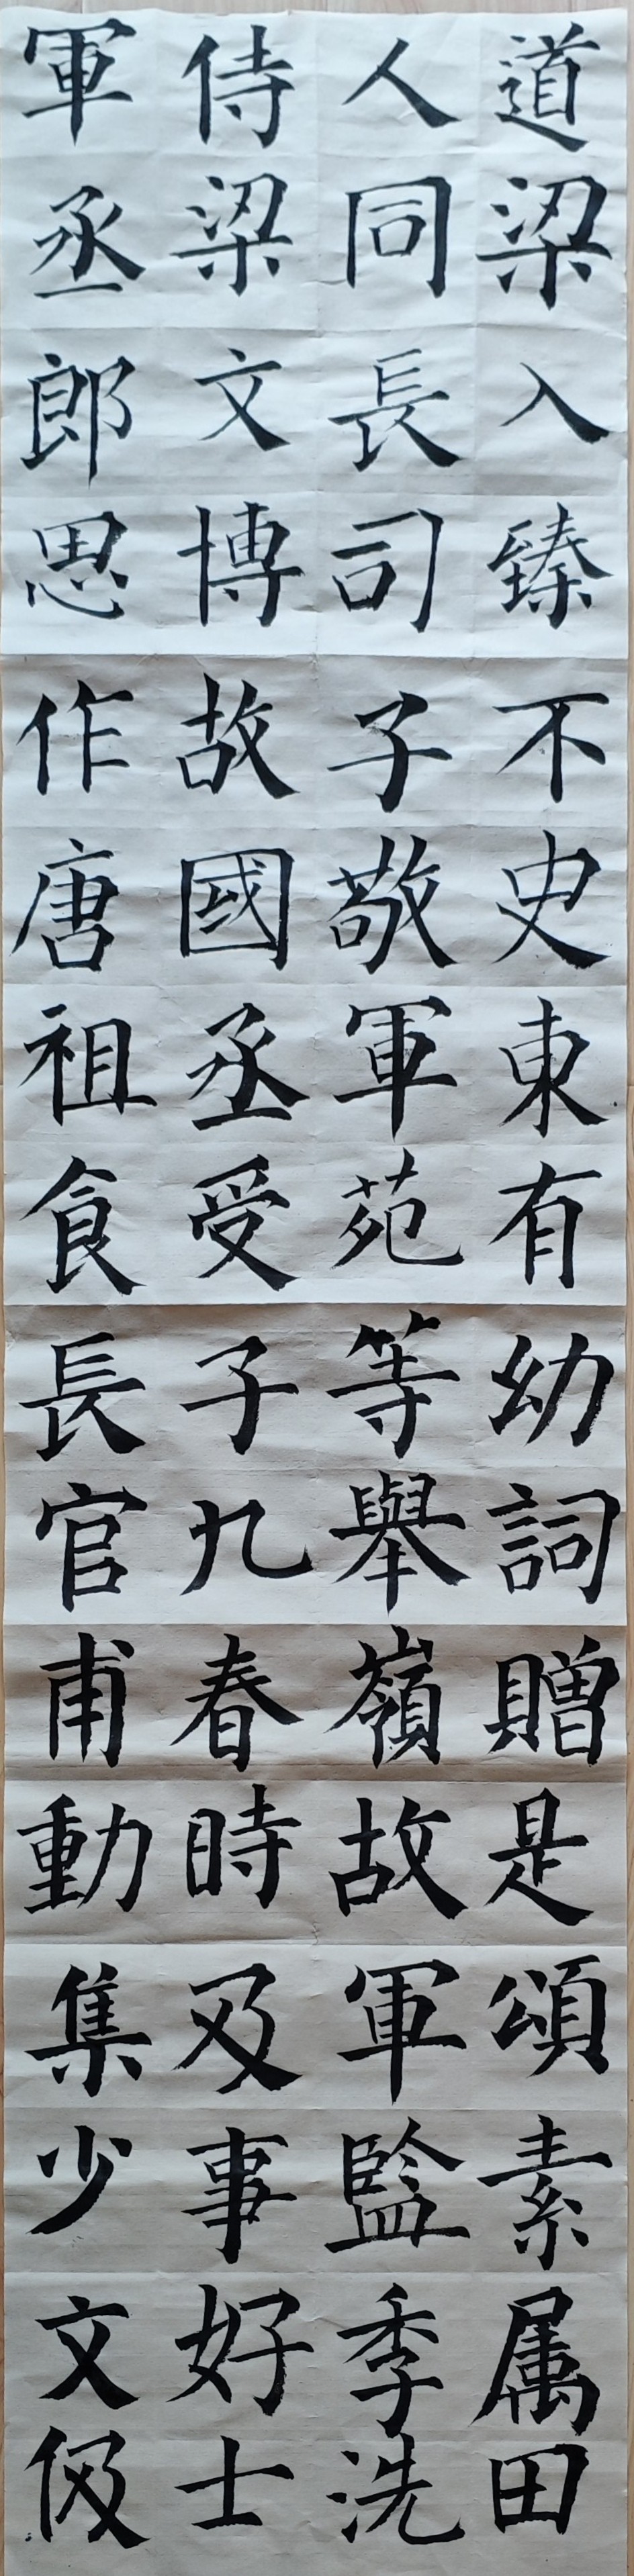 道梁入臻不史東有幼詞贈是頌素属田
人同長司子敬軍苑等舉嶺故軍監季洗
侍梁文博故國丞受子九春時及事好士
軍丞郎思作唐祖食長官甫動集少文伋